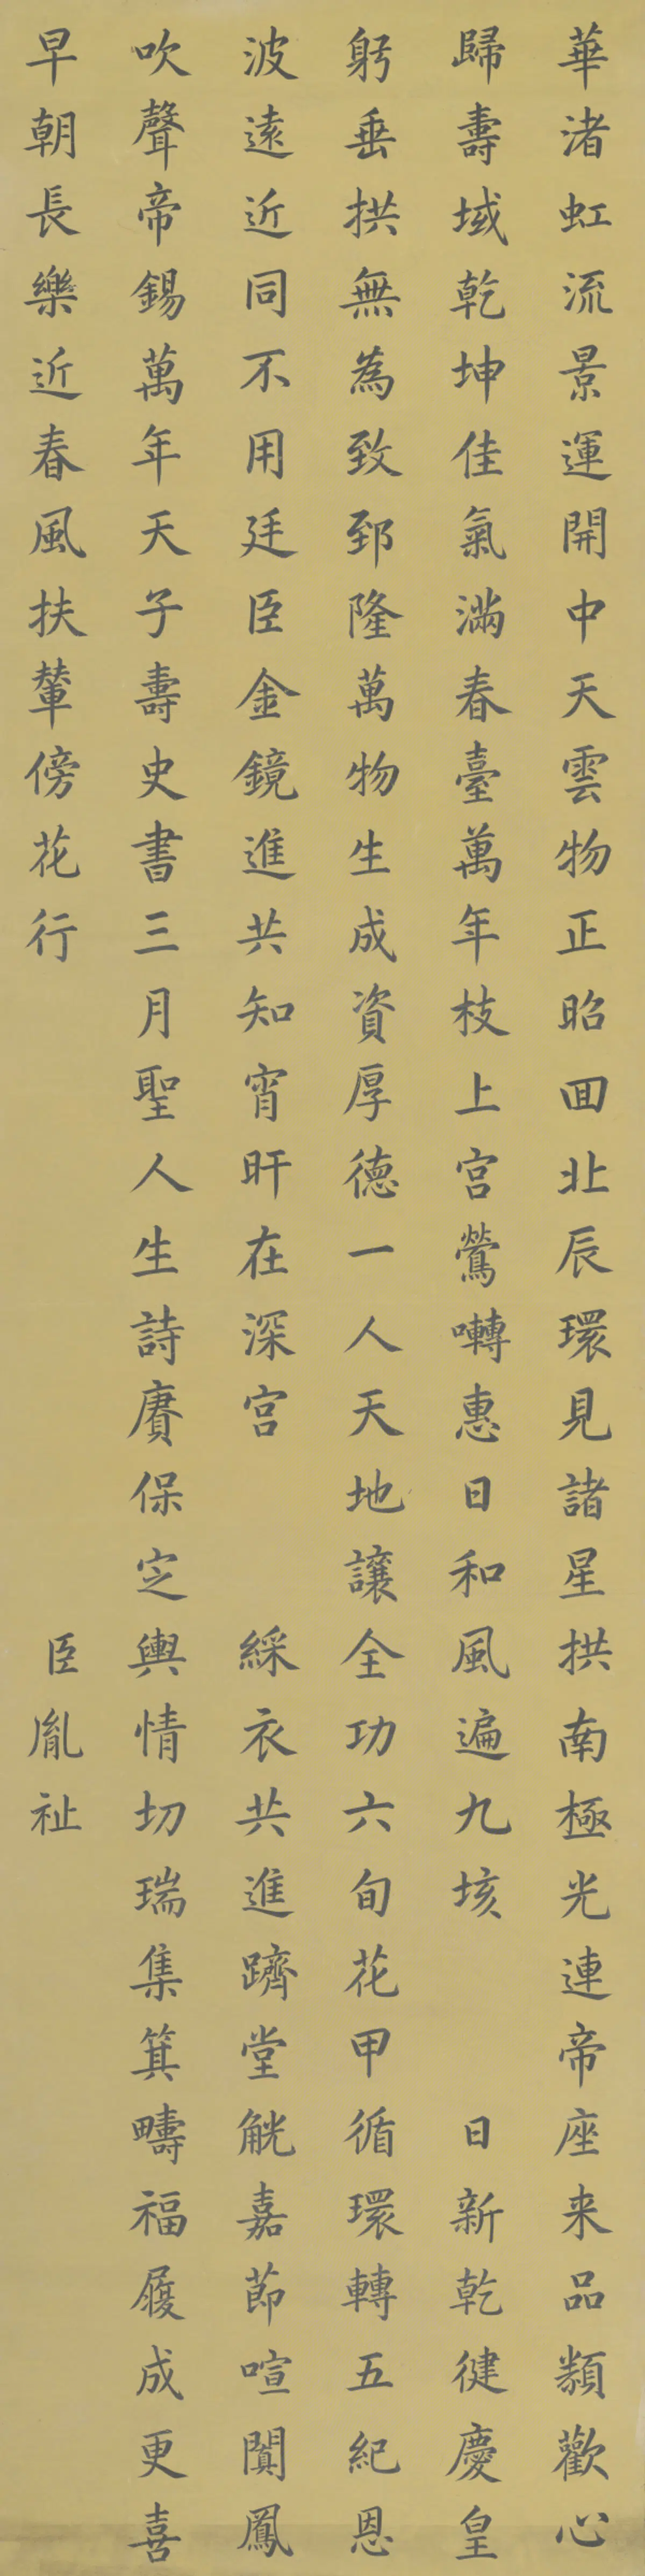 華渚虹流景運開中天雲物正昭囬北辰環見諸星拱南極光連帝座来品類歡心
歸壽域乾坤佳氣滿春臺萬年枝上宮鶯囀惠日和風遍九垓 日新乾健慶皇
躬垂拱無為致郅隆萬物生成資厚德一人天地讓全功六旬花甲循環轉五紀恩
波遠近同不用廷臣金鏡進共知宵旰在深宮 綵衣共進躋堂觥嘉節喧闐鳳
吹聲帝錫萬年天子壽史書三月聖人生詩賡保㝎輿情切瑞集箕疇福履成更喜
早朝長樂近春風扶輦傍花行 臣胤祉